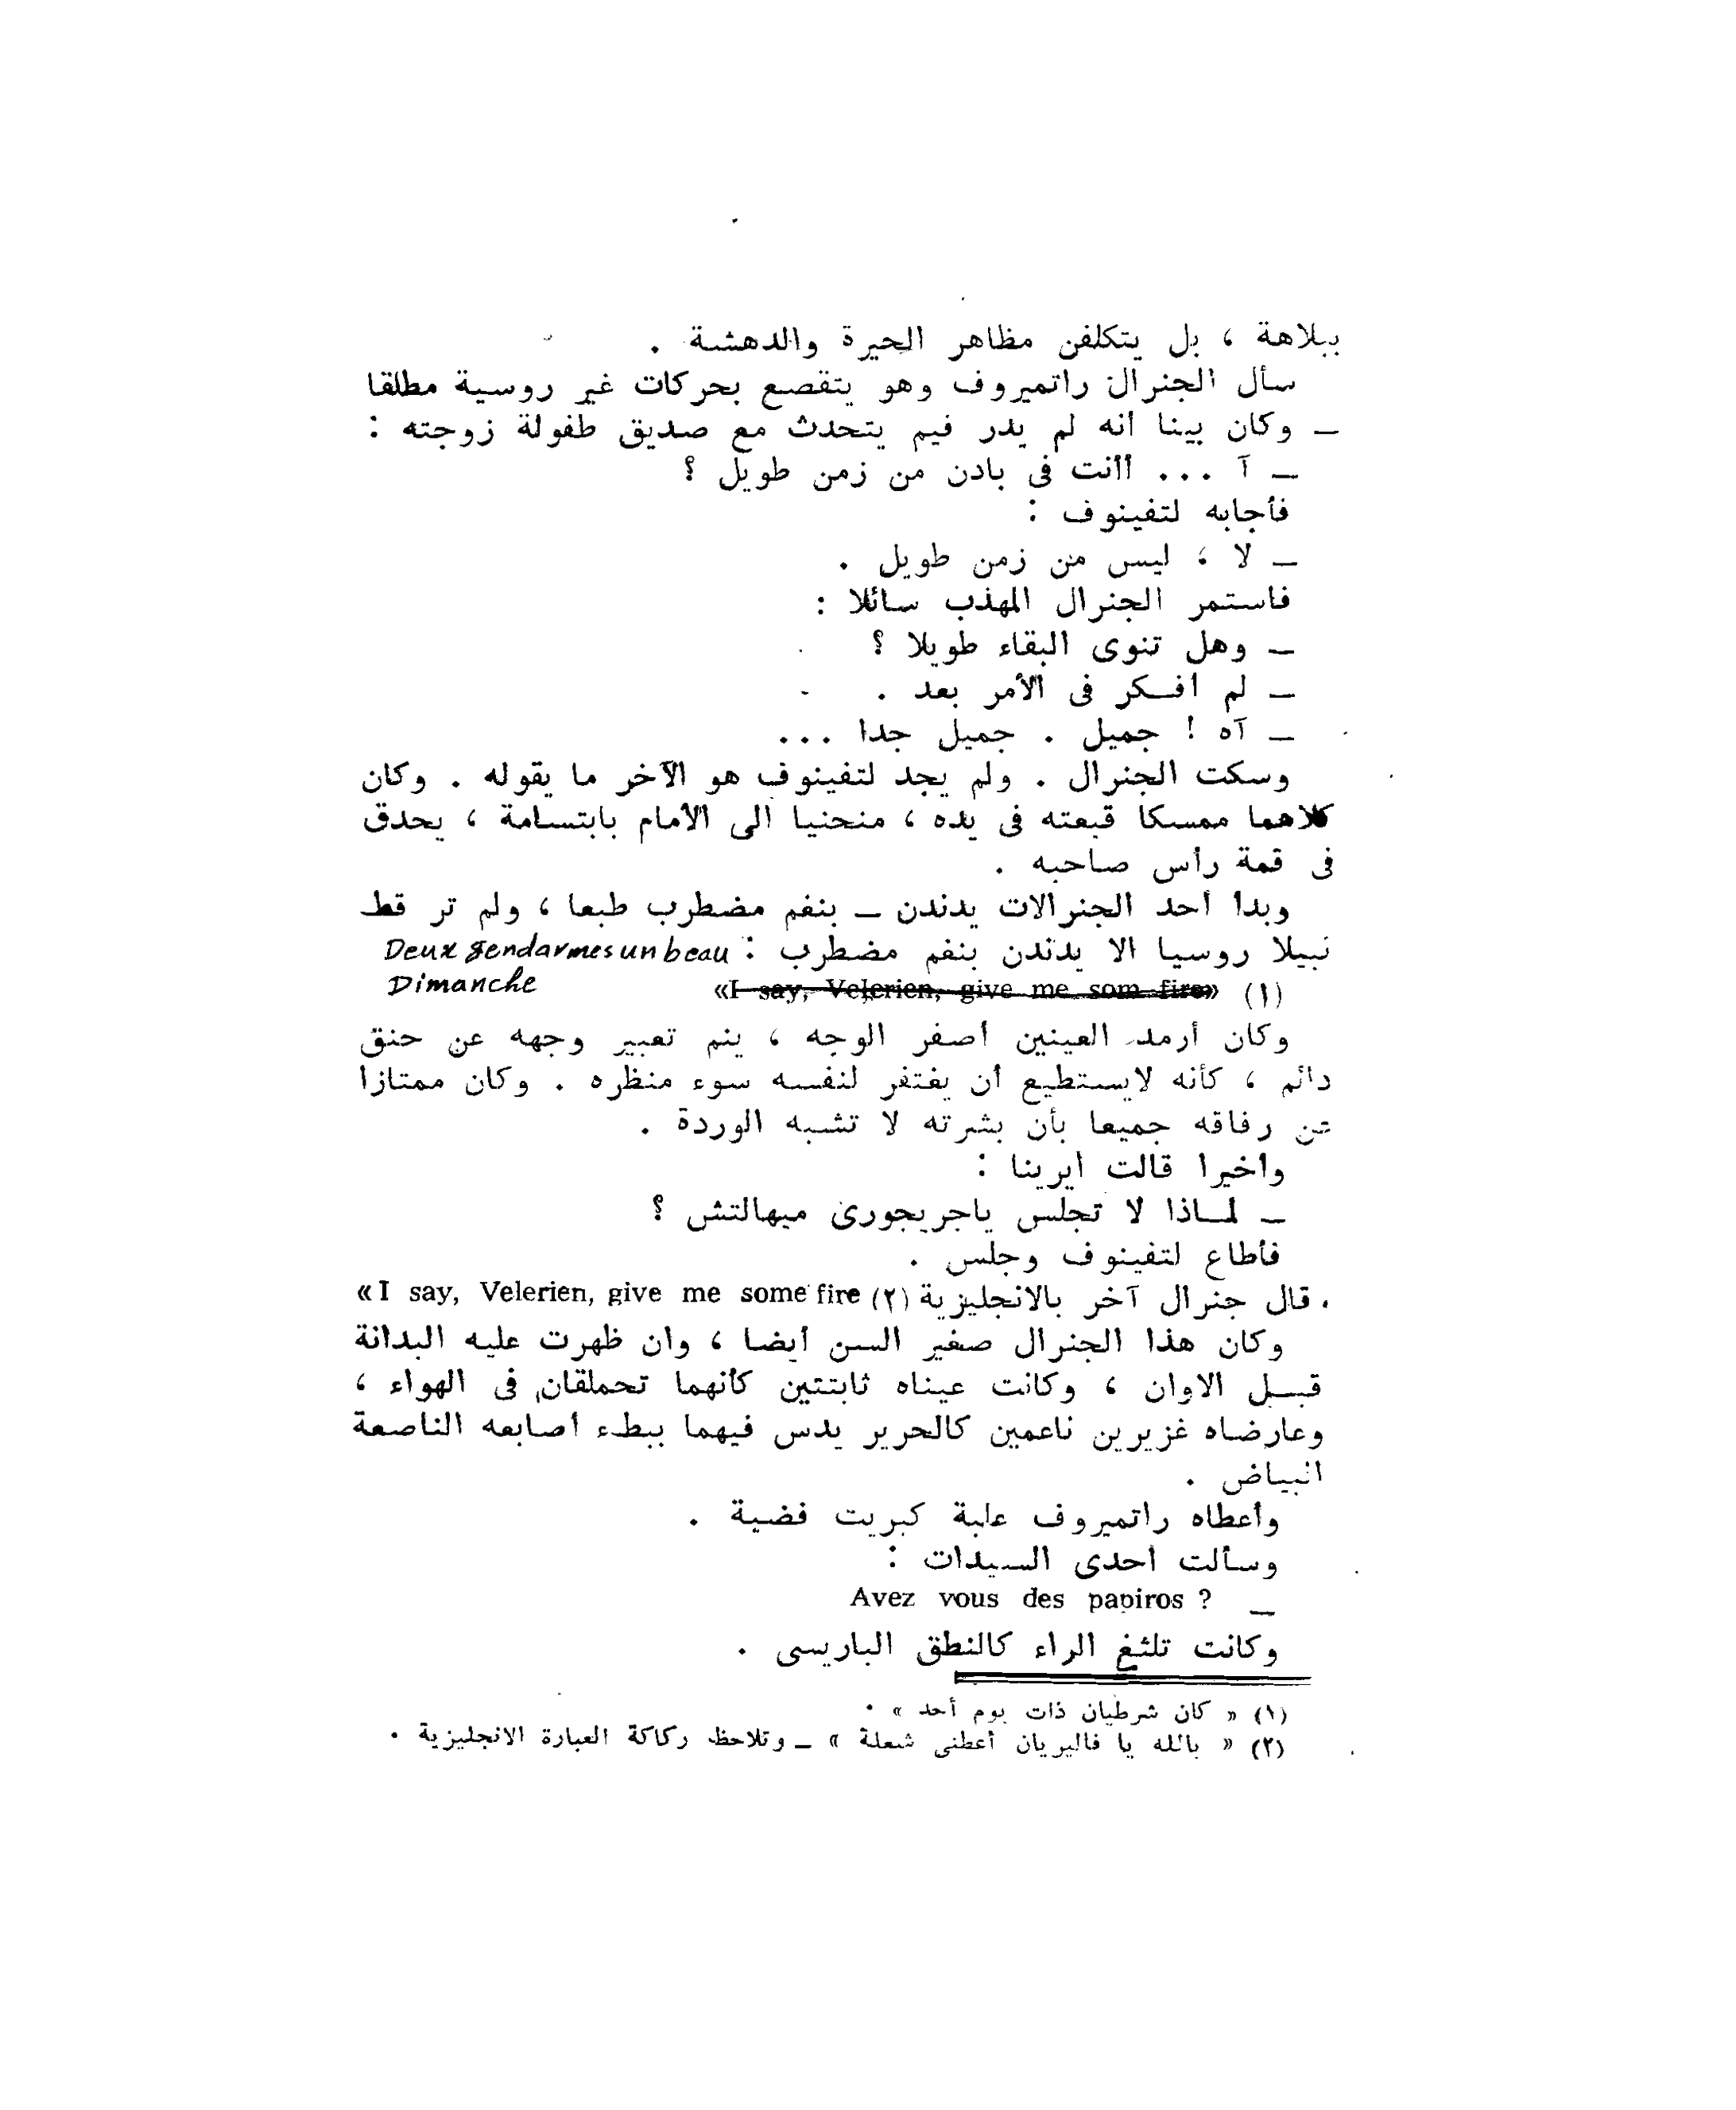 ببلاهة ، بل يتكلفن مظاهر الحيرة والدهشة .
سأل الجنرال راتميروف وهو يتقصع بحركات غير روسية مطلقا
ـ وكان بينا أنه لم يدر فيم يتحدث مع صديق طفولة زوجته :
ـ آ ... أأنت فى بادن من زمن طويل ؟
فأجابه لتفينوف :
ـ لا ، ليس من زمن طويل .
فاستمر الجنرال المهذب سائلا :
ـ وهل تنوى البقاء طويلا ؟
ـ لم أفكر فى الأمر بعد .
ـ آه ! جميل . جميل جدا ...
وسكت الجنرال . ولم يجد لتفينوف هو الآخر ما يقوله . وكان
كلاهما ممسكا قبعته فى يده ، منحنيا الى الأمام بابتسامة ، يحدق
فى قمة رأس صاحبه .
وبدأ أحد الجنرالات يدندن ـ بنغم مضطرب طبعا ، ولم تر قط
نبيلا روسيا الا يدندن بنغم مضطرب : Deux gendarmes un beau
Dimanche
(١) «I say, Velerien, give me som fire»
وكان أرمد العينين أصفر الوجه ، ينم تعبير وجهه عن حنق
دائم ، كأنه لايستطيع أن يغتفر لنفسه سوء منظره . وكان ممتازا
عن رفاقه جميعا بأن بشرته لا تشبه الوردة .
وأخيرا قالت ايرينا :
ـ لماذا لا تجلس ياجريجورى ميهالتش ؟
فأطاع لتفينوف وجلس .
. قال جنرال آخر بالانجليزية (٢) «I say, Velerien, give me some fire
وكان هذا الجنرال صغير السن أيضا ، وان ظهرت عليه البدانة
قبل الاوان ، وكانت عيناه ثابتتين كأنهما تحملقان فى الهواء ،
وعارضاه غزيرين ناعمين كالحرير يدس فيهما ببطء أصابعه الناصعة
البياض .
وأعطاه راتميروف علبة كبريت فضية .
وسألت احدى السيدات :
ـ Avez vous des papiros ?
وكانت تلثغ الراء كالنطق الباريسى .
(١) « كان شرطيان ذات يوم أحد » .
(٢) « بالله يا فاليريان أعطنى شعلة » ـ وتلاحظ ركاكة العبارة الانجليزية .